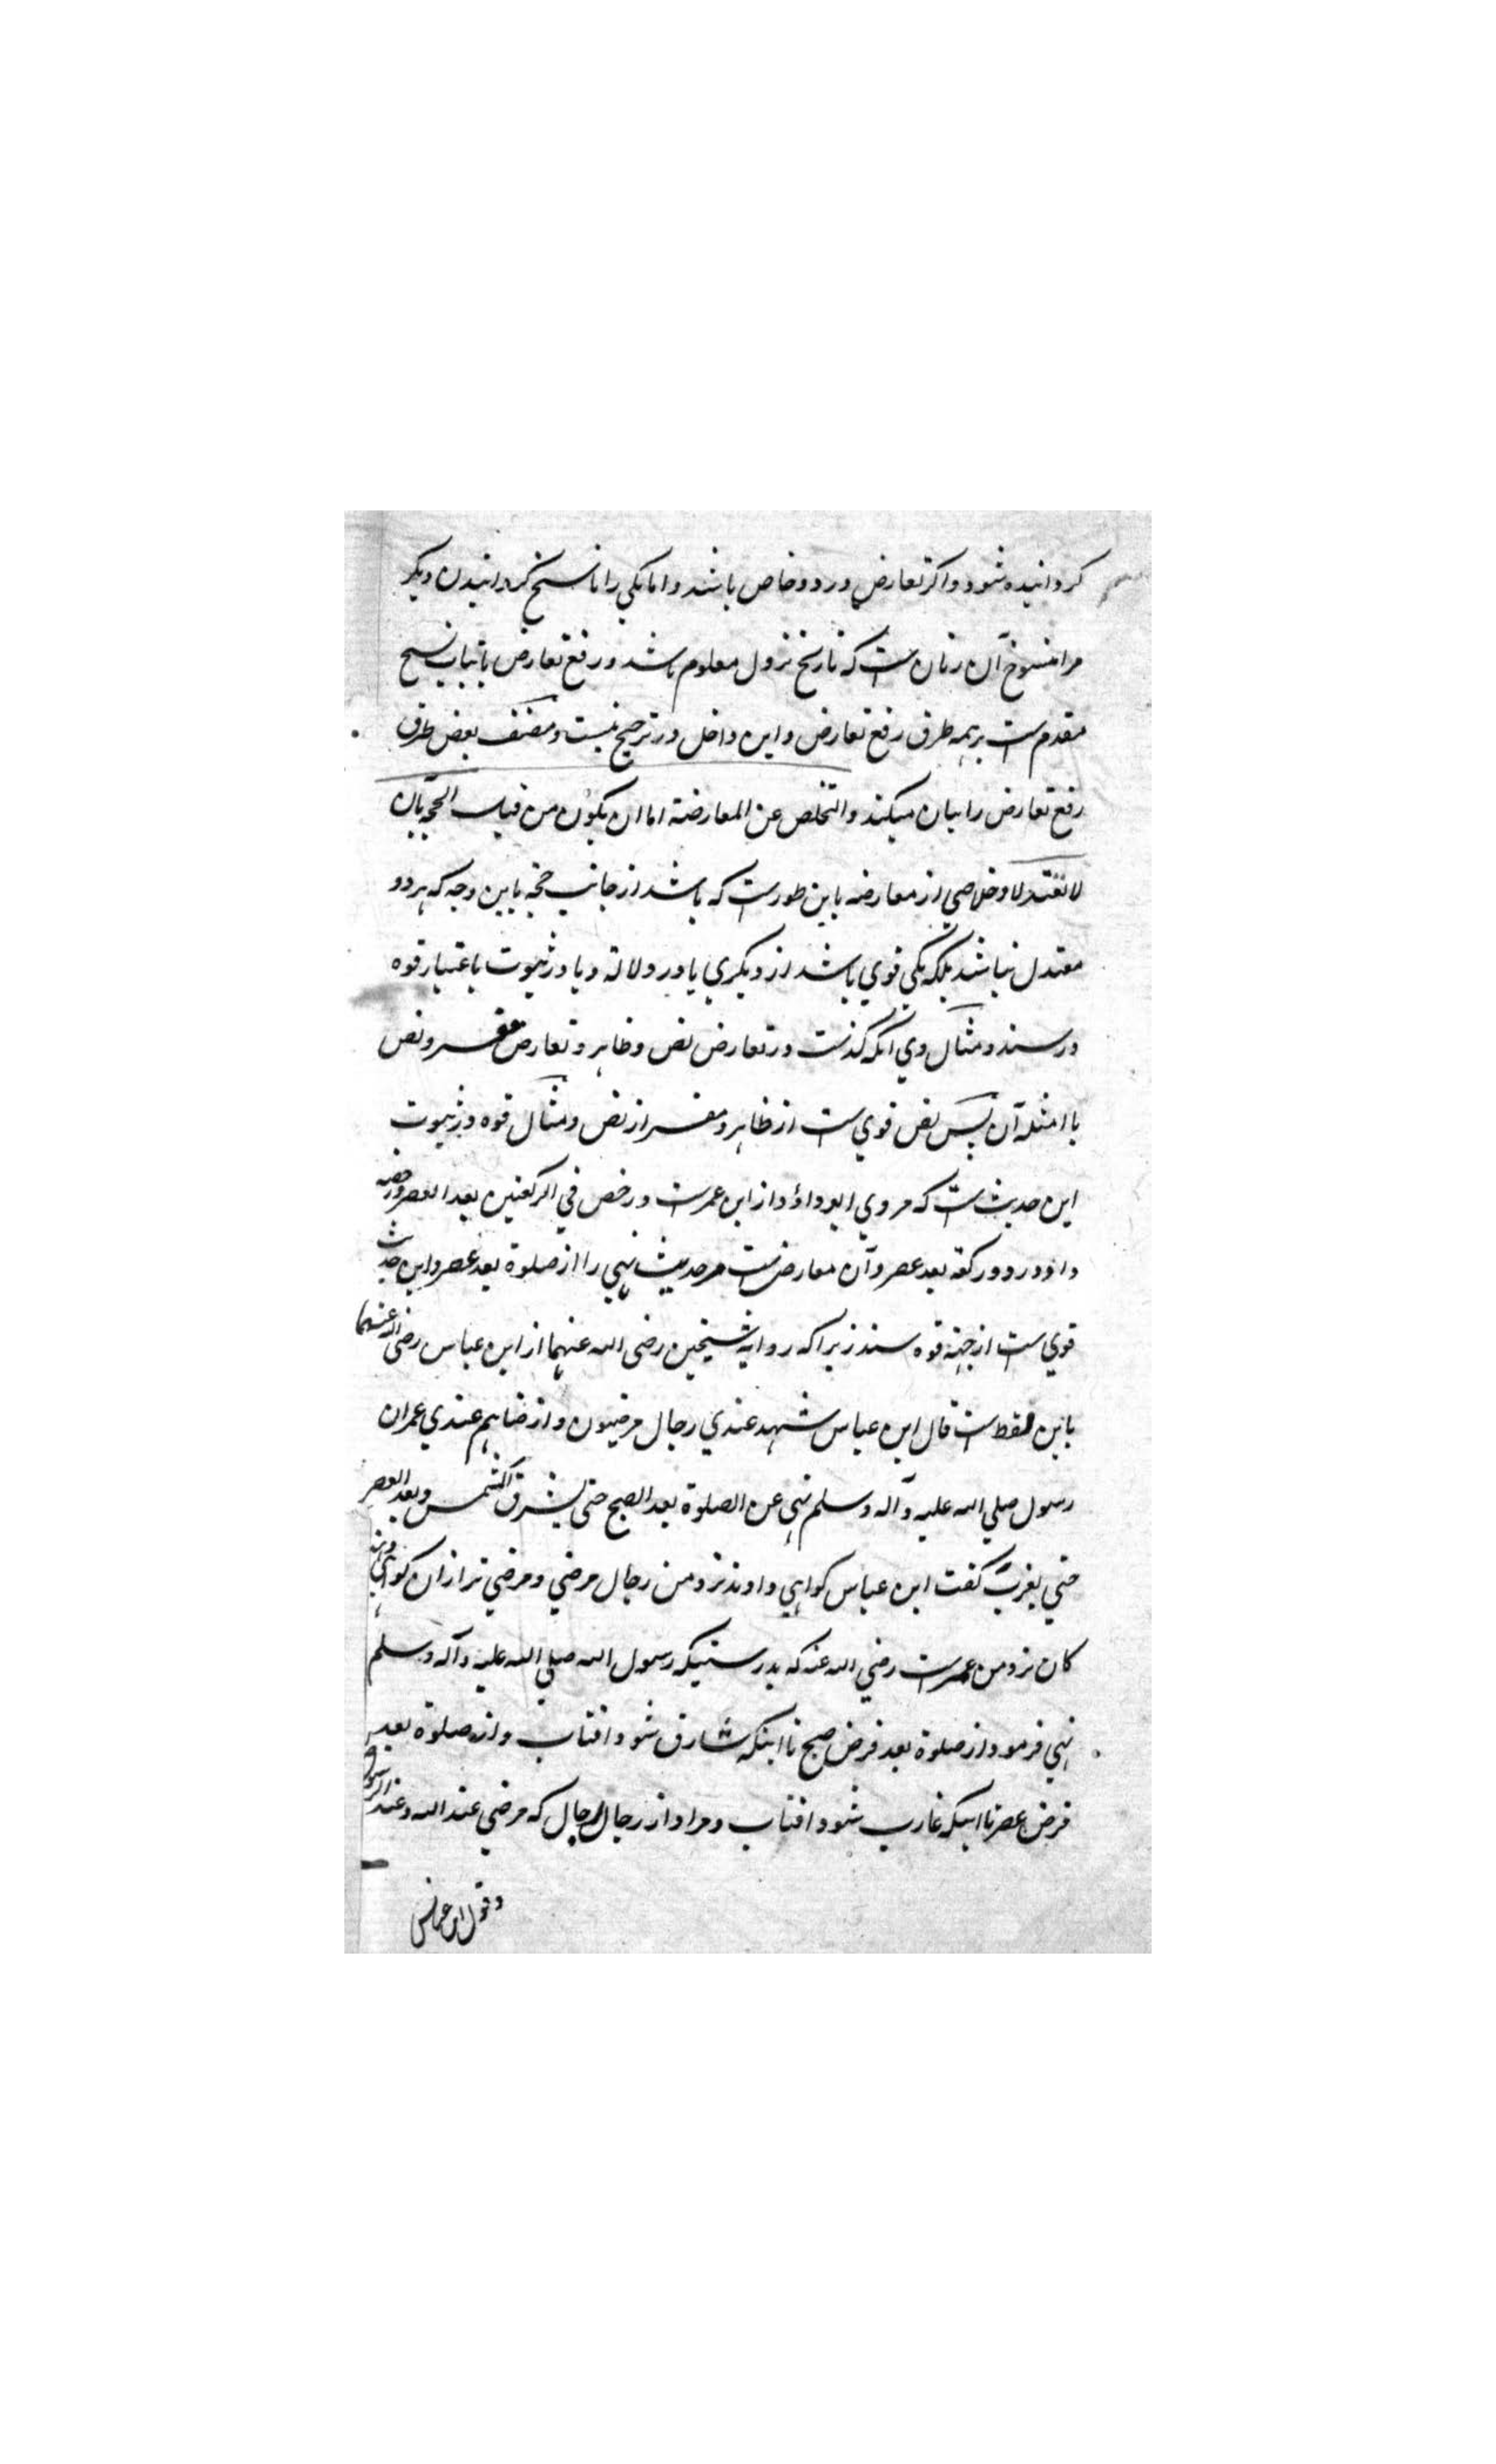 کردانیده شود واکر تعارض در دو خاص باشد واما یکی را ناسخ کردانیدن دیکر
را منسوخ آن زمان ست که تاریخ نزول معلوم باشد ورفع تعارض باثبات نسخ
مقدم ست بر همه طرق رفع تعارض واین داخل در ترجیح نیست ومصنف بعض طرق
رفع تعارض را بیان میکند والتخلص عن المعارضة اما ان یکون من قبل الحجة بان
لا تعتدلا وخلاصی از معارضه باین طورست که باشد از جانب حجة باین وجه که هر دو
معتدل نباشد بلکه یکی قوی باشد از دیکری یا در دلالة ویا در ثبوت باعتبار قوه
در سند ومثال وی آنکه کذشت در تعارض نص وظاهر وتعارض مفسر ونص
با امثله آن پس نص قوی ست از ظاهر ومفسر از نص ومثال قوه در ثبوت
این حدیث ست که مروی ابو داؤد از ابن عمرست ورخص فی الرکعتین بعد العصر ورخصه
داد در دو رکعة بعد عصر وآن معارض ست مر حدیث نهی را از صلوة بعد عصر واین حدیث
قوی ست از جهة قوه سند زیرا که روایة شیخین رضی الله عنهما از ابن عباس رضی الله عنهما
باین لفظ ست قال ابن عباس شهد عندی رجال مرضیون وارضاهم عندی عمر ان
رسول صلی الله علیه وآله وسلم نهی عن الصلوة بعد الصبح حتی یشرق الشمس وبعد العصر
حتی یغرب کفت ابن عباس کواهی دادند نزد من رجال مرضی ومرضی تر ازان کواهی دهند
کان نزد من عمرست رضی الله عنه که بدرستیکه رسول الله صلی الله علیه وآله وسلم
نهی فرمود از صلوة بعد فرض صبح تا اینکه شارق شود افتاب واز صلوة بعد
فرض عصر تا اینکه غارب شود افتاب ومراد از رجال رجال که مرضی عند الله وعند الرسول
وقول ابن عباس